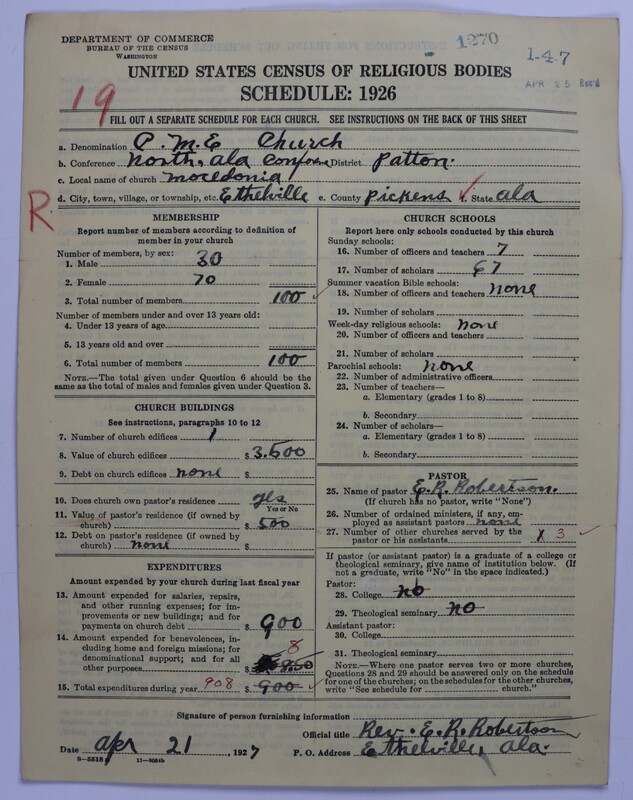 DEPARTMENT OF COMMERCE
BUREAU OF THE CENSUS
WASHINGTON
1270
1-4-7
APR 25 Rec'd
UNITED STATES CENSUS OF RELIGIOUS BODIES
SCHEDULE: 1926
19
FILL OUT A SEPARATE SCHEDULE FOR EACH CHURCH. SEE INSTRUCTIONS ON THE BACK OF THIS SHEET
a. Denomination C. M. E Church
b. Conference North, ala Conference District Patton.
c. Local name of church Mocedonia
d. City, town, village, or township, etc. Ethelville e. County Pickens f. State ala
R.
MEMBERSHIP
Report number of members according to definition of
member in your church
Number of members, by sex:
1. Male 30
2. Female 70
3. Total number of members 100
Number of members under and over 13 years old:
4. Under 13 years of age
5. 13 years old and over
6. Total number of members 100
NOTE.—The total given under Question 6 should be the
same as the total of males and females given under Question 3.
CHURCH BUILDINGS
See instructions, paragraphs 10 to 12
7. Number of church edifices 1
8. Value of church edifices $ 3.500
9. Debt on church edifices none $
10. Does church own pastor's residence yes
Yes or No
11. Value of pastor's residence (if owned by
church) $ 500
12. Debt on pastor's residence (if owned by
church) none $
EXPENDITURES
Amount expended by your church during last fiscal year
13. Amount expended for salaries, repairs,
and other running expenses; for im-
provements or new buildings; and for
payments on church debt $ 900
14. Amount expended for benevolences, in-
cluding home and foreign missions; for
denominational support; and for all
other purposes $ 8
15. Total expenditures during year 908 $ 900
CHURCH SCHOOLS
Report here only schools conducted by this church
Sunday schools:
16. Number of officers and teachers 7
17. Number of scholars 67
Summer vacation Bible schools:
18. Number of officers and teachers none
19. Number of scholars
Week-day religious schools: none
20. Number of officers and teachers
21. Number of scholars
Parochial schools: none
22. Number of administrative officers
23. Number of teachers—
a. Elementary (grades 1 to 8)
b. Secondary
24. Number of scholars—
a. Elementary (grades 1 to 8)
b. Secondary
PASTOR
25. Name of pastor E. R. Robertson.
(If church has no pastor, write "None")
26. Number of ordained ministers, if any, em-
ployed as assistant pastors none
27. Number of other churches served by the
pastor or his assistants 3
If pastor (or assistant pastor) is a graduate of a college or
theological seminary, give name of institution below. (If
not a graduate, write "No" in the space indicated.)
Pastor:
28. College no
29. Theological seminary no
Assistant pastor:
30. College
31. Theological seminary
NOTE.—Where one pastor serves two or more churches,
Questions 28 and 29 should be answered only on the schedule
for one of the churches; on the schedules for the other churches,
write "See schedule for church."
Signature of person furnishing information
Official title Rev. E. R. Robertson
Date apr 21, 1927 P. O. Address Ethelville, ala.
8-5518 11-9054b